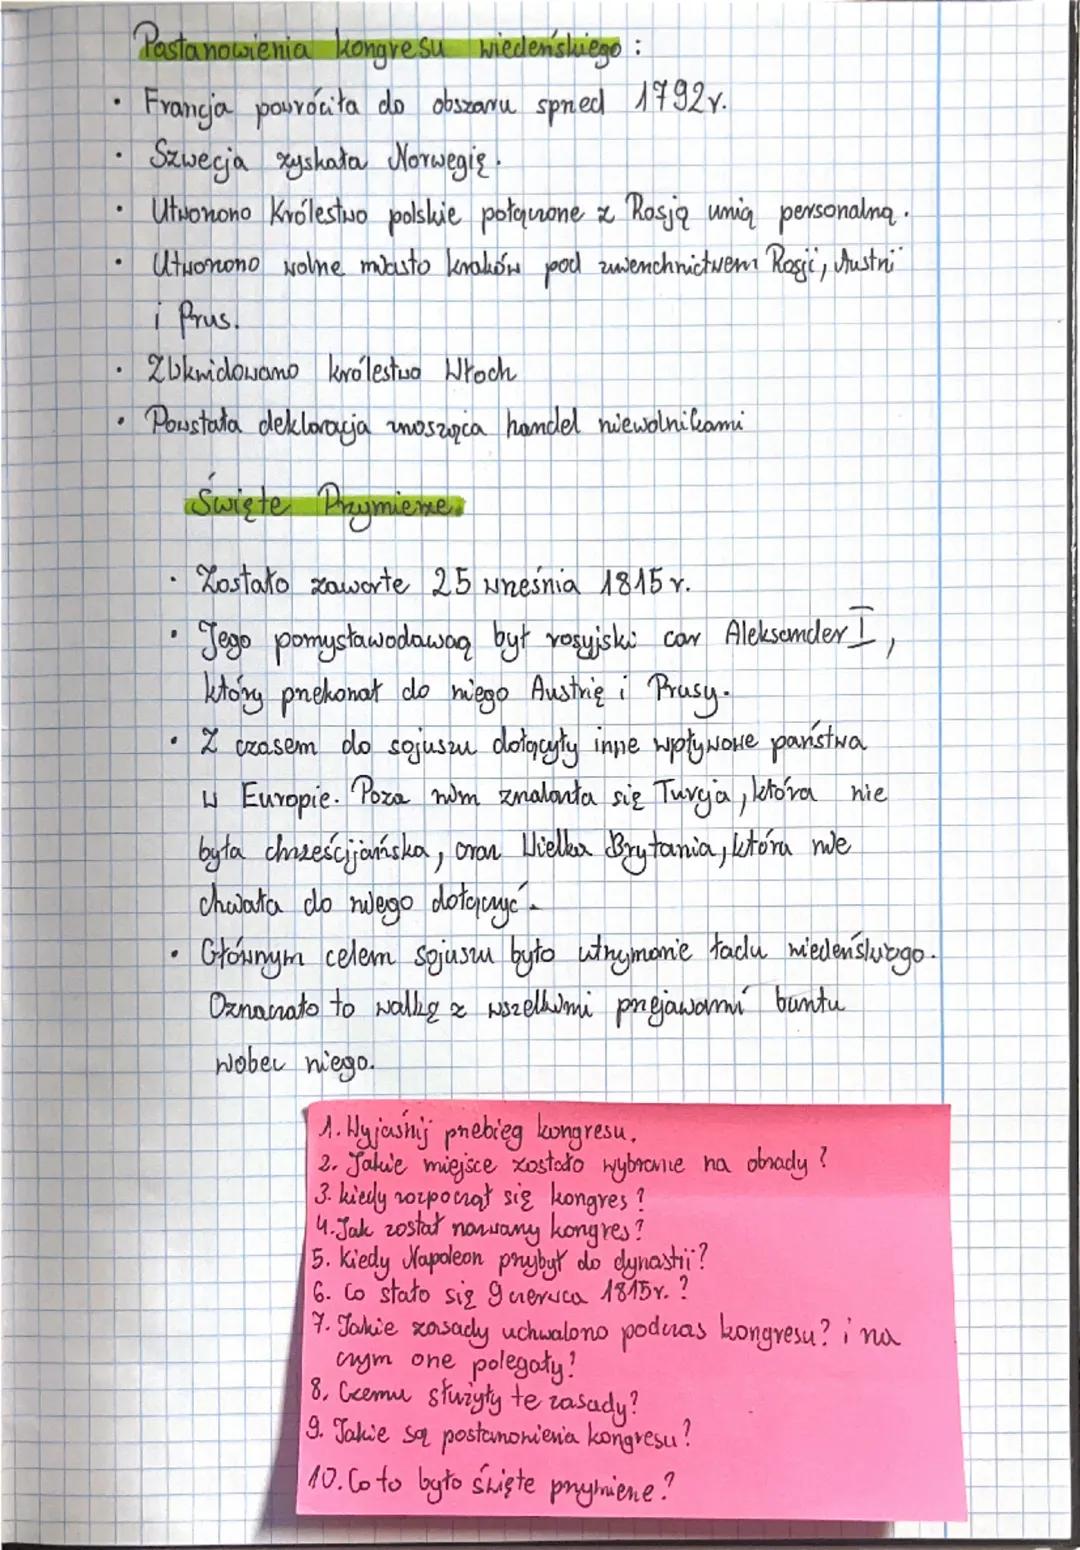 Postanowienia kongresu wiedeńskiego :
• Francja powróciła do obszaru sprzed 1792r.
• Szwecja zyskała Norwegię.
• Utworzono Królestwo polskie połączone z Rosją unią personalną.
• Utworzono wolne miasto kraków pod zwierzchnictwem Rosji, Austrii
i Prus.
• Zlikwidowano królestwo Włoch
• Powstała deklaracja znosząca handel niewolnikami
Święte Przymierze
• Zostało zawarte 25 września 1815r.
• Jego pomysławodawcą był rosyjski car Aleksander I,
który przekonał do niego Austrię i Prusy.
• Z czasem do sojuszu dołączyły inne wpływowe państwa
w Europie. Poza nim znalazła się Turcja, która nie
była chrześcijańska, oraz Wielka Brytania, która nie
chciała do niego dołączyć.
• Głównym celem sojuszu było utrzymanie ładu wiedeńskiego.
Oznaczało to walkę z wszelkimi przejawami buntu
wobec niego.
1. Wyjaśnij przebieg kongresu.
2. Jakie miejsce zostało wybranie na obrady?
3. kiedy rozpoczął się kongres?
4. Jak został nazwany kongres?
5. kiedy Napoleon przybył do dynastii?
6. Co stało się 9 czerwca 1815r.?
7. Jakie zasady uchwalono podczas kongresu? i na
czym one polegały?
8. Czemu służyły te zasady?
9. Jakie są postanowienia kongresu?
10. Co to było święte przymierze?